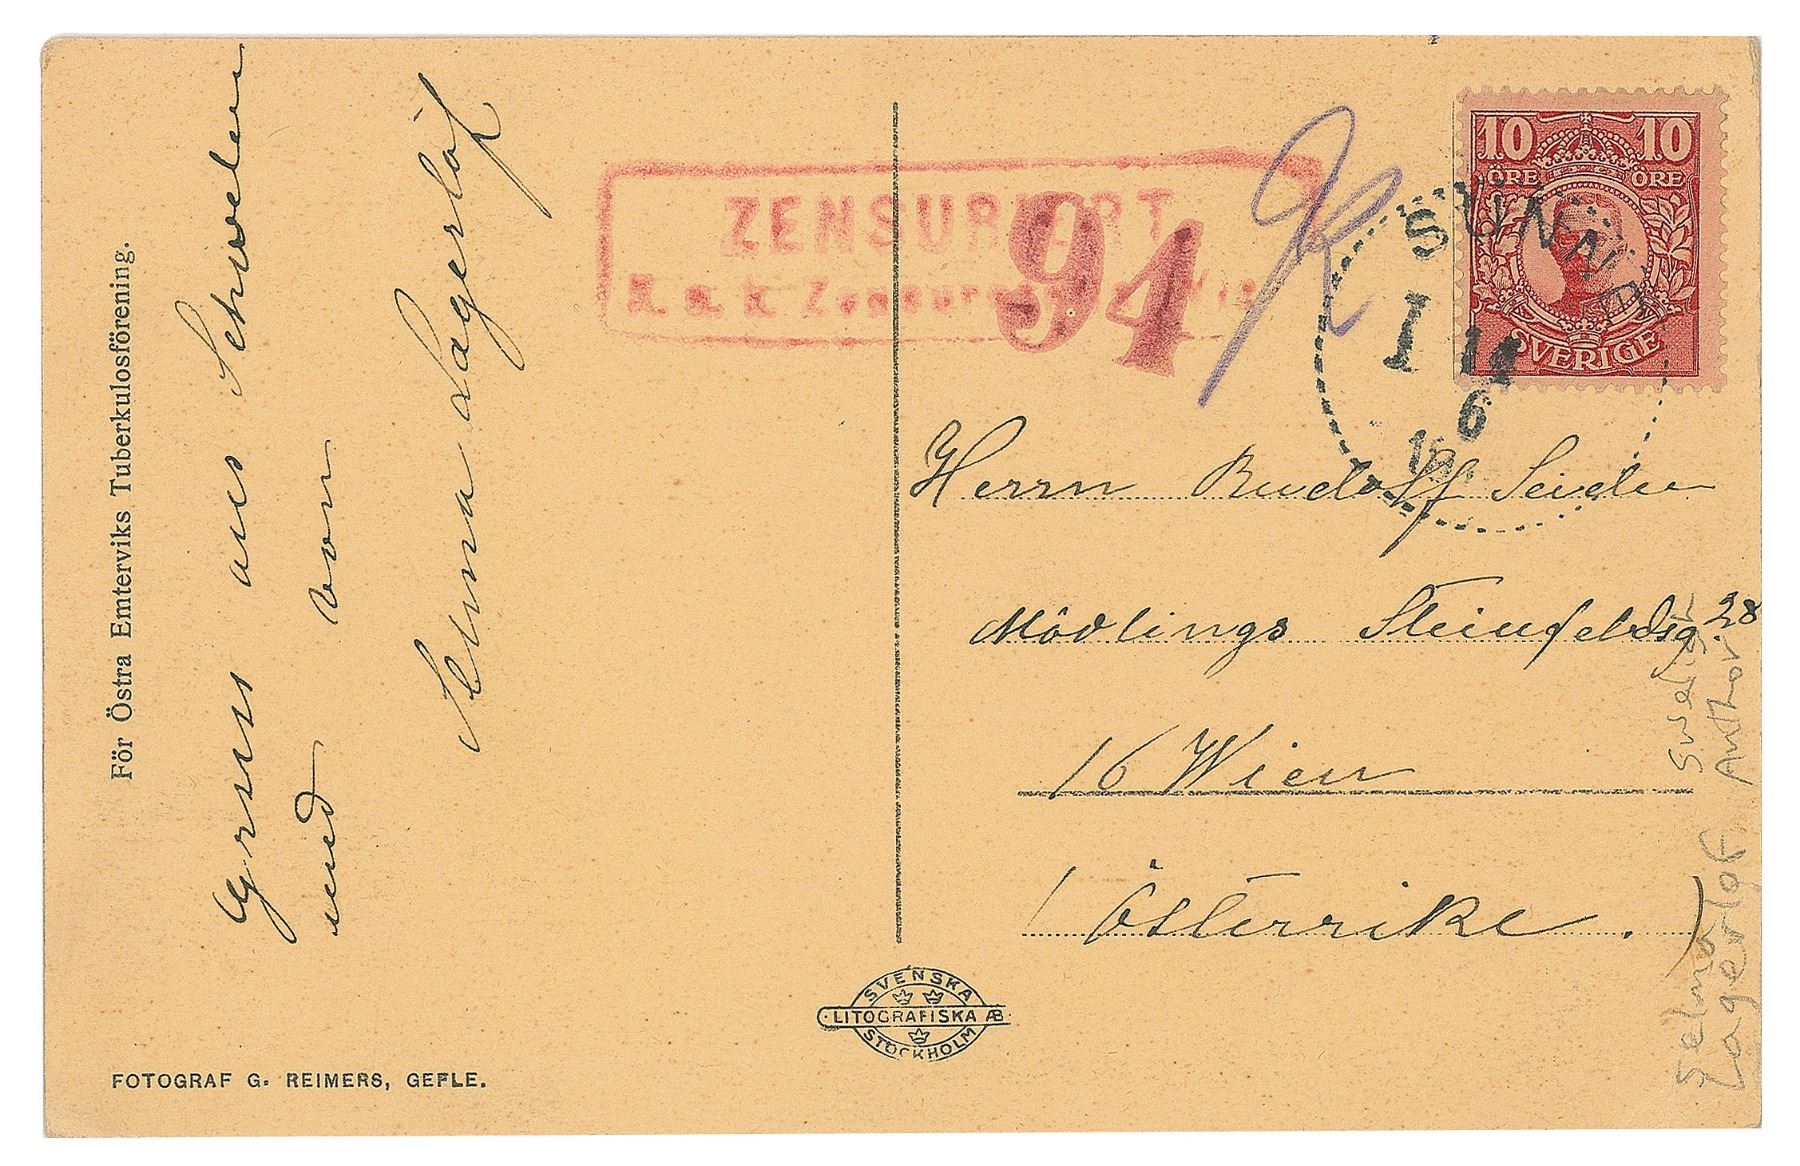 För Östra Emterviks Tuberkulosförening.
Gruss aus Schweden
und von
Selma Lagerlöf
FOTOGRAF G. REIMERS, GEFLE.
ZENSURIERT
K. u. k. Zensur
94
10 10
ÖRE ÖRE
SVERIGE
SUNNE
1
14
6
Herrn Rudolf Seidler
Mödlings Steinfeldsg. 28
16 Wien
Österrike.
SVENSKA
LITOGRAFISKA AB
STOCKHOLM
Selma
Lagerlöf
Swedish
Author